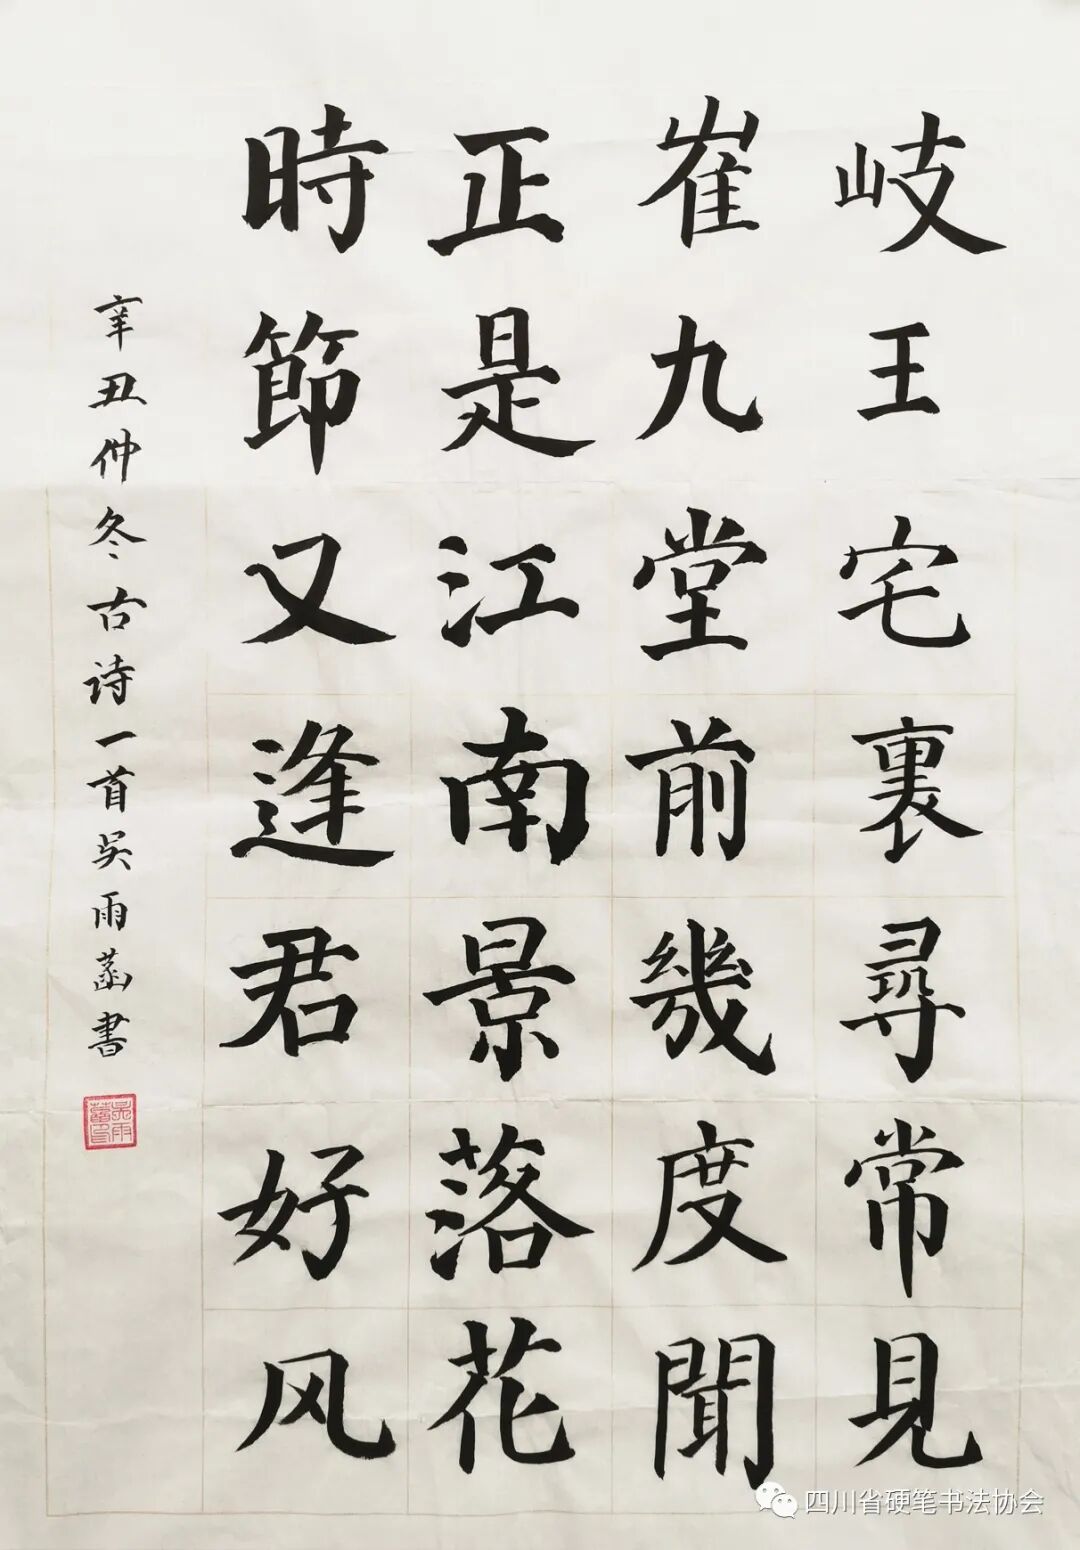 岐王宅裏尋常見
崔九堂前幾度聞
正是江南景落花
時節又逢君好风
辛丑仲冬古诗一首吴雨菡書
吴雨菡印
四川省硬笔书法协会